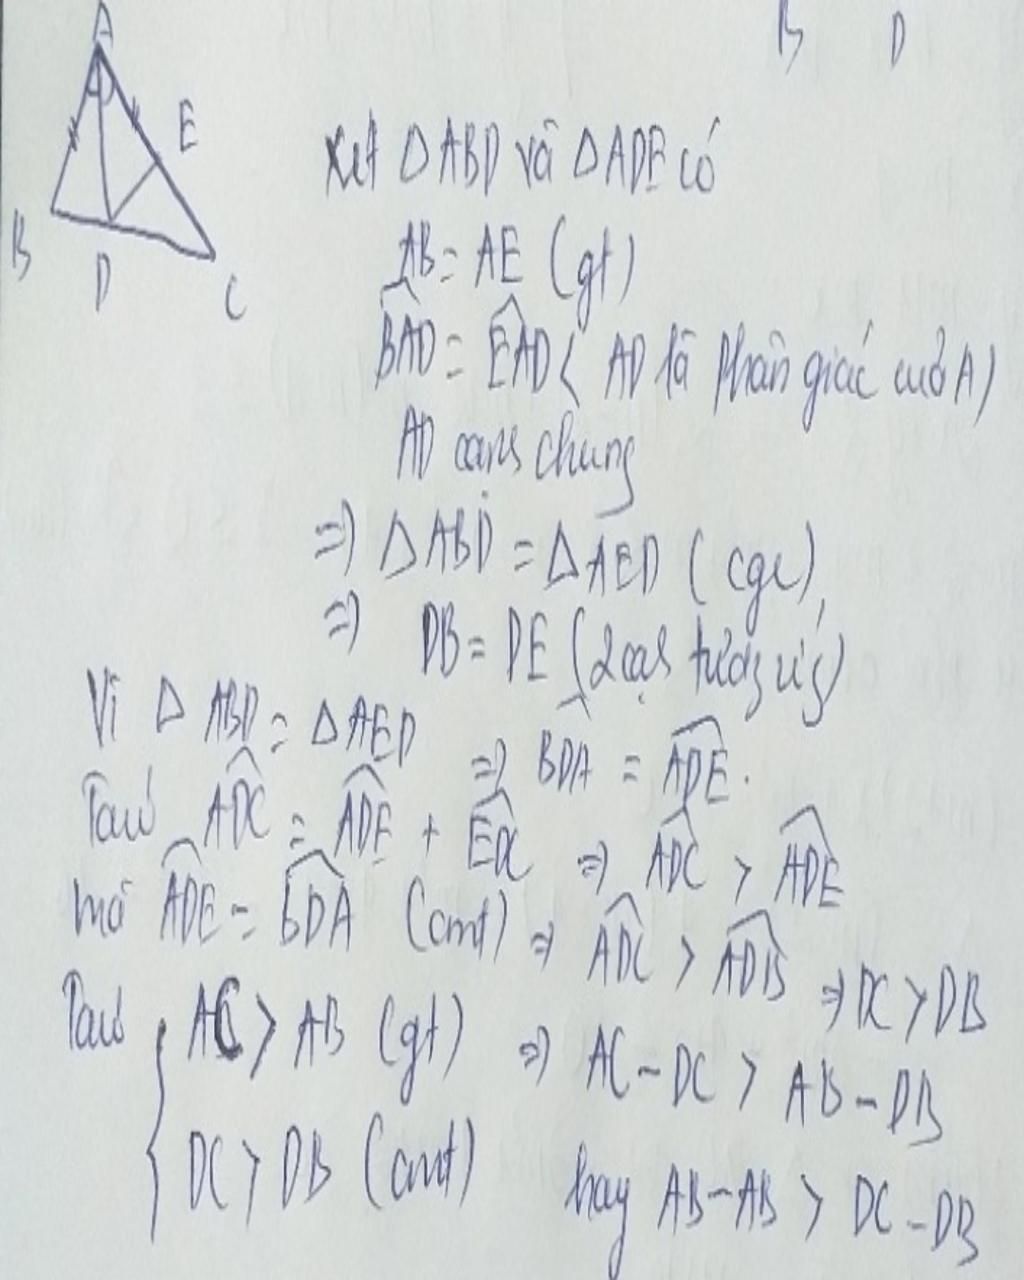 B D
A
E
B
D
C
Xét △ABD và △ADE có
AB = AE (gt)
BAD = EAD ( AD là phân giác của A)
AD cạnh chung
=> △ABD = △AED (cgc)
=> DB = DE (2 cạnh tương ứng)
Vì △ ABD = △AED => BDA = ADE.
Ta có ADC = ADE + EDC => ADC > ADE
mà ADE = BDA (cmt) => ADC > ADB => DC > DB
Ta có { AC > AB (gt) => AC - DC > AB - DB
DC > DB (cmt) hay AB - AB > DC - DB